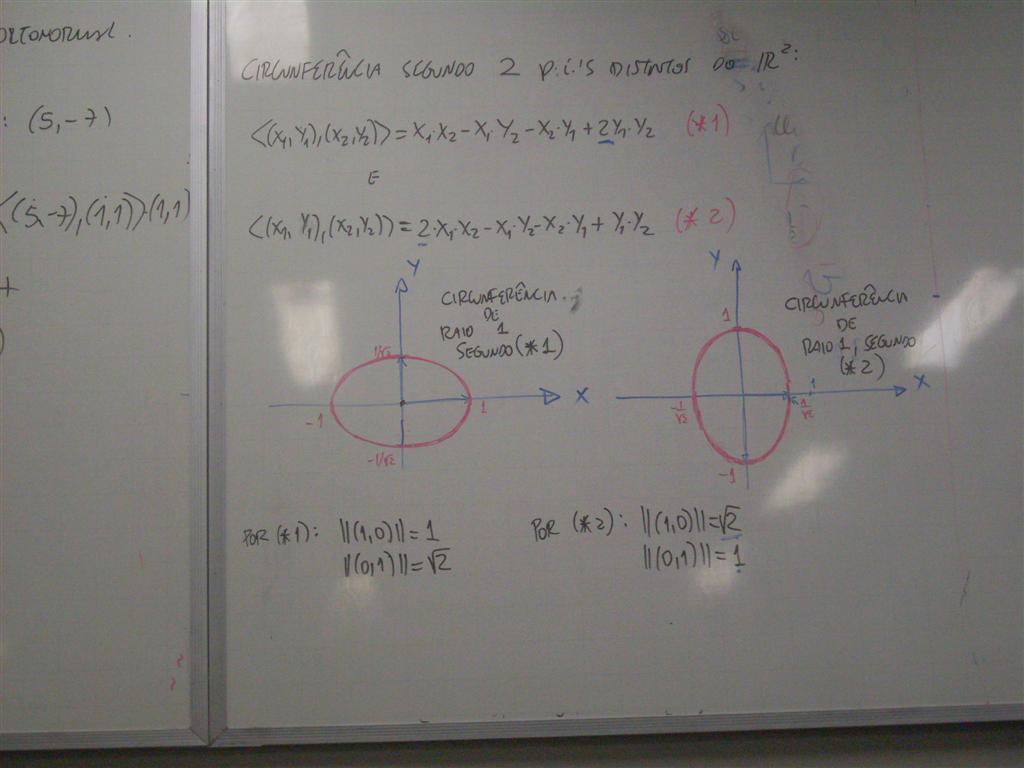 ORTONORMAL.
: (5,-7)
<(5,-7),(1,1)>.(1,1)
+
)
CIRCUNFERÊNCIA SEGUNDO 2 P.I.'S DISTINTOS DO IR²:
<(X₁,Y₁),(X₂,Y₂)> = X₁·X₂ - X₁·Y₂ - X₂·Y₁ + 2Y₁·Y₂ (*1)
E
<(X₁,Y₁),(X₂,Y₂)> = 2·X₁·X₂ - X₁·Y₂ - X₂·Y₁ + Y₁·Y₂ (*2)
Y
CIRCUNFERÊNCIA
DE
RAIO 1
SEGUNDO (*1)
1/√2
-1
1
X
-1/√2
Y
CIRCUNFERÊNCIA
DE
RAIO 1, SEGUNDO
(*2)
1
-1/√2
1/√2
1
X
-1
POR (*1): ||(1,0)|| = 1
||(0,1)|| = √2
POR (*2): ||(1,0)|| = √2
||(0,1)|| = 1